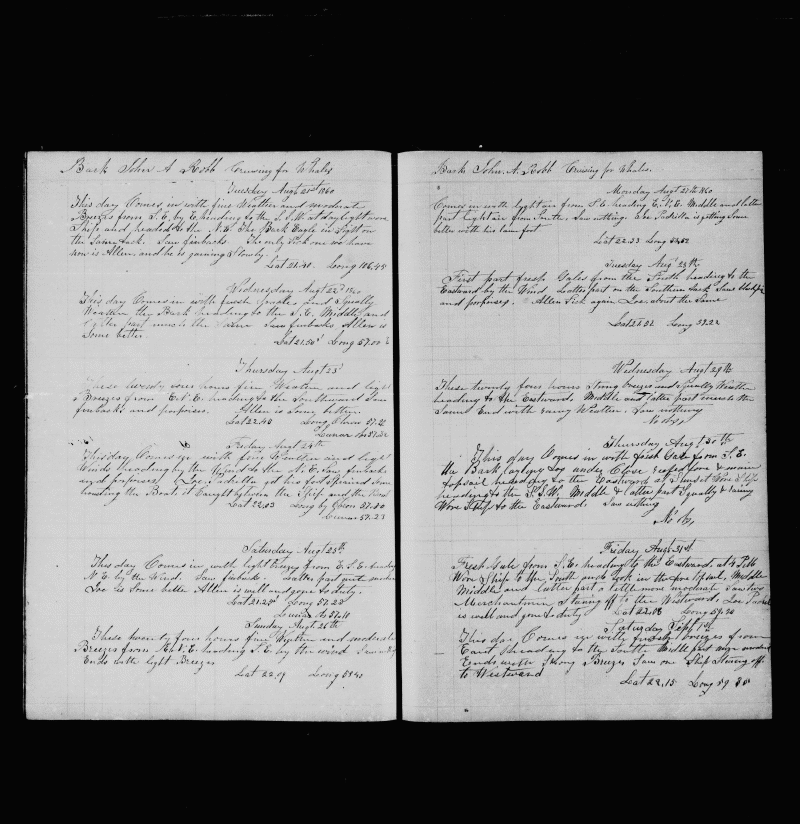 Bark John A Robb Cruising for Whales
Tuesday Augt 21st 1860
This day Comes in with fine Weather and moderate
Breezes from S.E. by E heading to the S.S.W. at daylight wore
Ship and headed to the N.E. The Bark Eagle in Sight on
the Same tack. Saw finbacks. The only Sick one we have
now is Allen, and he is gaining Slowly.
Lat 21.40 Long 106.45
Wednesday Augt 22d 1860
This day Comes in with fresh and Squally
Weather the Bark heading to the S.E. Middle and
latter part much the Same Saw finbacks Allen is
Some better.
Lat 21.50 Long 57.00
Thursday Augt 23d
These twenty four hours fine Weather and light
Breezes from E.N.E. heading to the Southward Saw
finbacks and porpoises. Allen is Some better.
Lat 22.40 Long Chron 57.
Lunar
Friday Augt 24th
This day Comes in with fine Weather and light
Winds heading by the Wind to the N.E. Saw finbacks
and porpoises. Joe Padrilla got his foot Sprained when
heading the Boats, it Caught between the Ship and the Boat
Lat 22.03 Long by Chron 57.40
Lunar 57.23
Saturday Augt 25th
This day Comes in with light breezes from E.S.E. heading
N.E. by the Wind. Saw finback. Latter part quite
Joe is Some better Allen is well and gone to duty.
Lat 21.25 Long 57.25
Lunar 57.11
Sunday Augt 26th
These twenty four hours fine Weather and moderate
Breezes from E.N.E. heading S.E. by the wind Saw
Ends with light Breezes
Lat 22.09 Long 57.40
Bark John. A. Robb Cruising for Whales.
Monday Augt 27th 1860
Comes in with light airs from S.E. heading E.N.E. Middle and latter
part light airs from South. Saw nothing. Joe Padrilla is getting Some
better with his lame foot
Lat 22.33 Long 58.52
Tuesday Augt 28th
First part fresh Gales from the South heading to the
Eastward by the Wind Latter part on the Southern tack Saw
and porpoises. Allen Sick again Joe about the Same
Lat 21.52 Long 59.22
Wednesday Augt 29th
These twenty four hours Strong breezes and Squally Weather
heading to the Eastward. Middle and latter part much the
Same End with rainy Weather. Saw nothing
No Obs
Thursday Augt 30th
This day Comes in with fresh Gale from S.E.
the Bark laying Log under Close reefed fore & main
topsail heading to the Eastward at Sunset Wore Ship
heading to the S.S.W. Middle & latter part Squally & rainy
Wore Ship to the Eastward. Saw nothing
No Obs
Friday Augt 31st
Fresh Gale from S.E. heading to the Eastward. at 4 P.M.
Wore Ship to the South and took in the fore topsail. Middle
Middle and latter part a little more moderate Saw two
Merchantmen Steering off to the Westward. Joe Padrilla
is well and gone to duty. Lat 22.08 Long 59.20
Saturday Sept 1st
This day Comes in with fresh breezes from
East heading to the South Middle part more moderate
Ends with Strong Breezes Saw one Ship Steering off
to Westward
Lat 22.15 Long 59 30